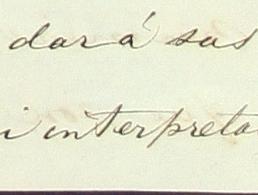 dar á sus
i interpreta